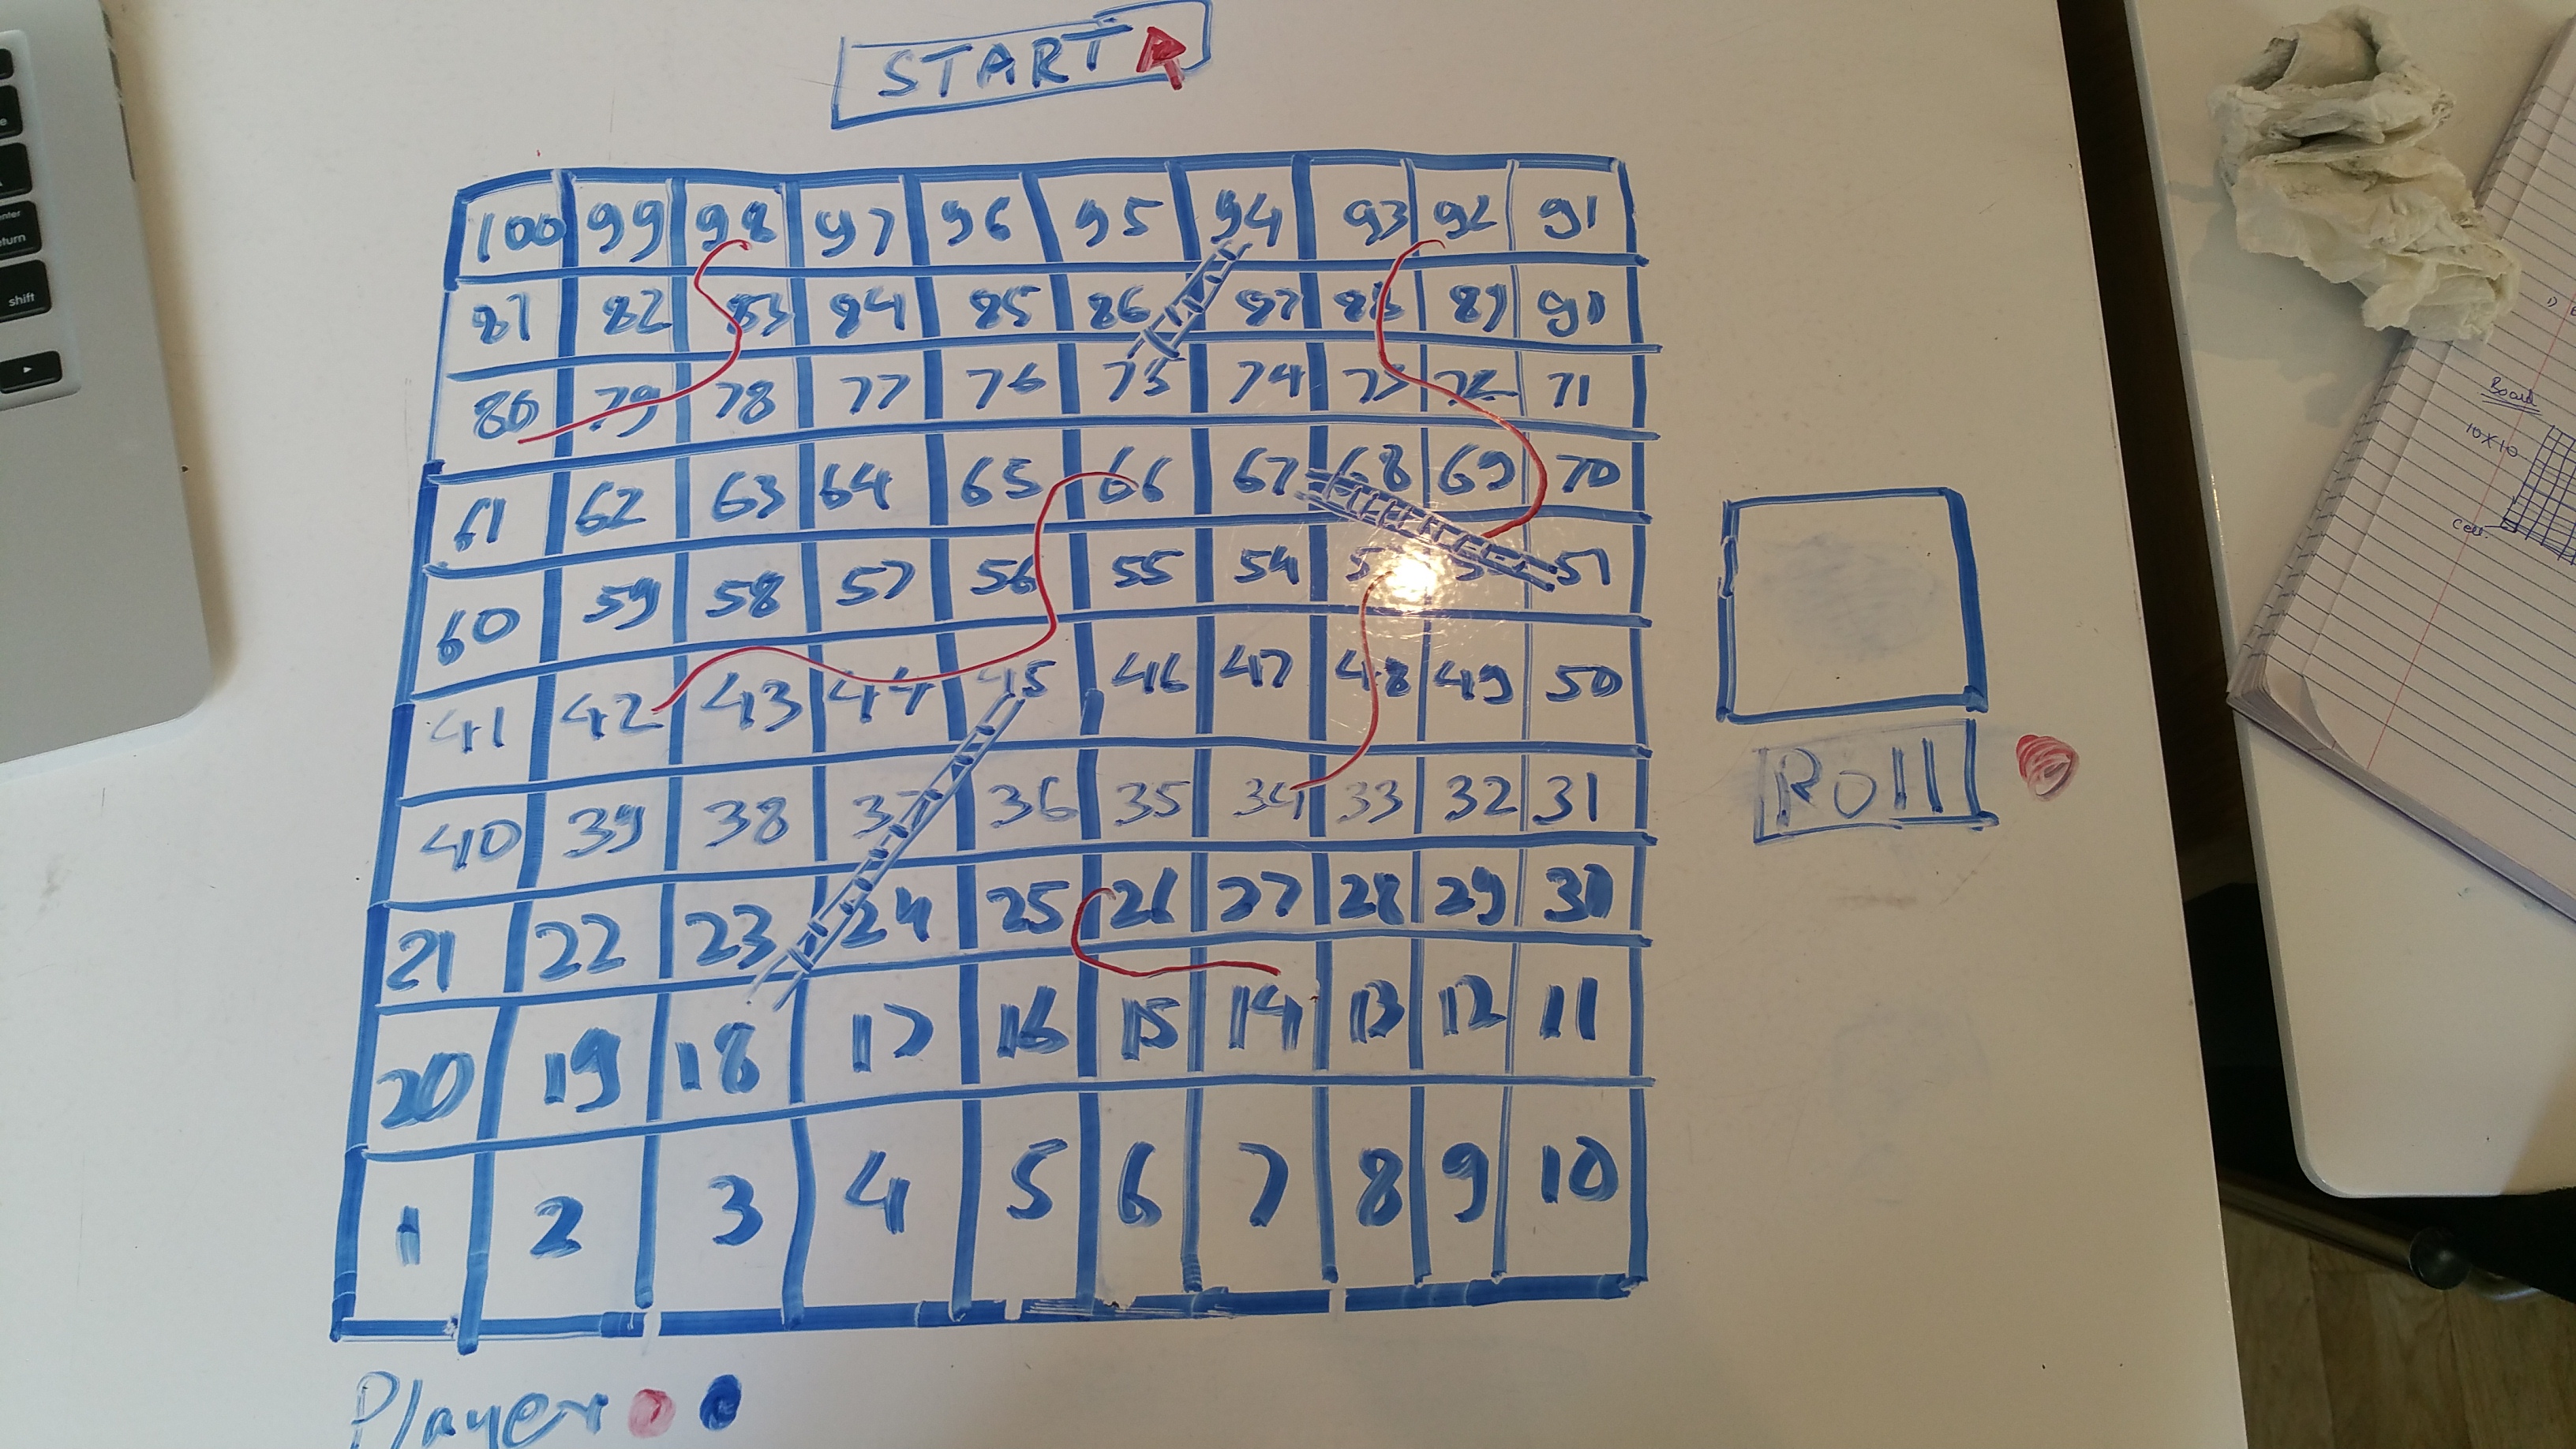 START
100 99 98 97 96 95 94 93 92 91
81 82 83 84 85 86 87 88 89 90
80 79 78 77 76 75 74 73 72 71
61 62 63 64 65 66 67 68 69 70
60 59 58 57 56 55 54 51
41 42 43 44 45 46 47 48 49 50
40 39 38 37 36 35 34 33 32 31
21 22 23 24 25 26 27 28 29 30
20 19 18 17 16 15 14 13 12 11
1 2 3 4 5 6 7 8 9 10
Roll
Player
enter
return
shift
Board
10×10
Cell